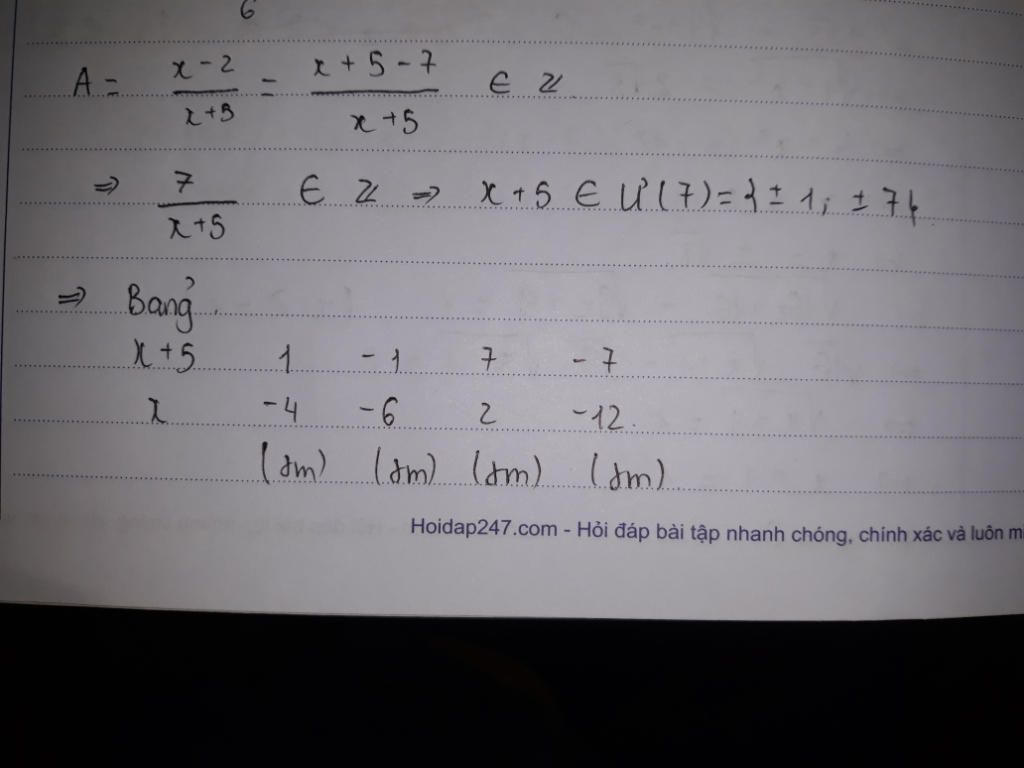 6
A = x - 2 / x + 5 = x + 5 - 7 / x + 5 ∈ ℤ
⇒ 7 / x + 5 ∈ ℤ ⇒ x + 5 ∈ Ư(7) = {± 1; ± 7}
⇒ Bảng.
x + 5 1 - 1 7 - 7
x -4 -6 2 -12.
(tm) (tm) (tm) (tm)
Hoidap247.com - Hỏi đáp bài tập nhanh chóng, chính xác và luôn m